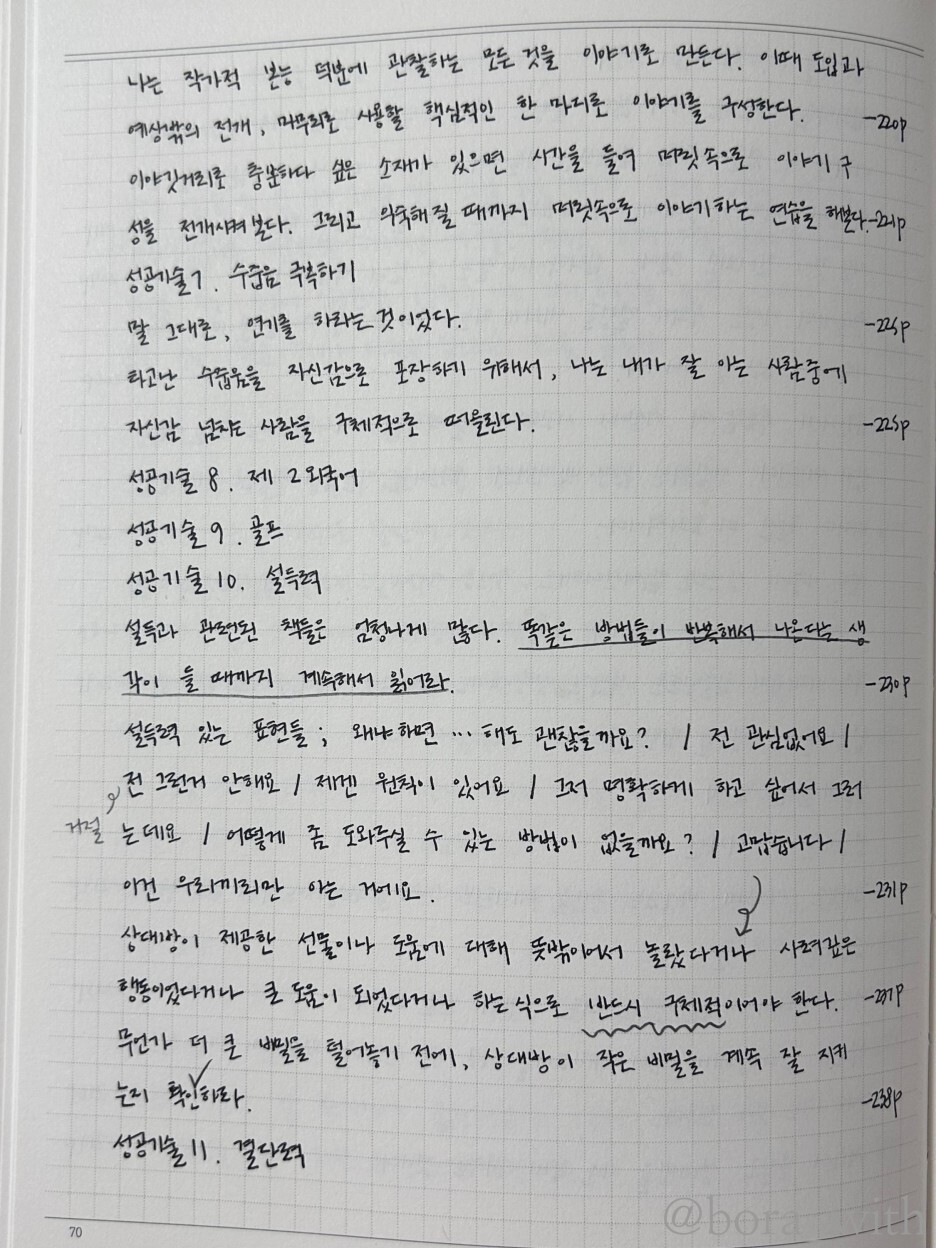 나는 작가적 본능 덕분에 관찰하는 모든 것을 이야기로 만든다. 이때 도입과
예상밖의 전개, 마무리로 사용할 핵심적인 한 마디로 이야기를 구성한다. -220p
이야깃거리로 충분하다 싶은 소재가 있으면 시간을 들여 머릿속으로 이야기 구
성을 전개시켜 본다. 그리고 익숙해질 때까지 머릿속으로 이야기하는 연습을 해본다. -221p
성공기술 7. 수줍음 극복하기
말 그대로, 연기를 하라는 것이었다. -224p
타고난 수줍음을 자신감으로 포장하기 위해서, 나는 내가 잘 아는 사람중에
자신감 넘치는 사람을 구체적으로 떠올린다. -225p
성공기술 8. 제 2외국어
성공기술 9. 골프
성공기술 10. 설득력
설득과 관련된 책들은 엄청나게 많다. 똑같은 방법들이 반복해서 나온다는 생
각이 들 때까지 계속해서 읽어라. -230p
설득력 있는 표현들; 왜냐하면 … 해도 괜찮을까요? / 전 관심없어요 /
전 그런거 안해요 / 제겐 원칙이 있어요 / 그저 명확하게 하고 싶어서 그러
거절 는데요 / 어떻게 좀 도와주실 수 있는 방법이 없을까요? / 고맙습니다 /
이건 우리끼리만 아는 거에요. -231p
상대방이 제공한 선물이나 도움에 대해 뜻밖이어서 놀랐다거나 사려깊은
행동이었다거나 큰 도움이 되었다거나 하는 식으로 반드시 구체적이어야 한다. -237p
무언가 더 큰 비밀을 털어놓기 전에, 상대방이 작은 비밀을 계속 잘 지키
는지 확인하라. -238p
성공기술 11. 결단력
70